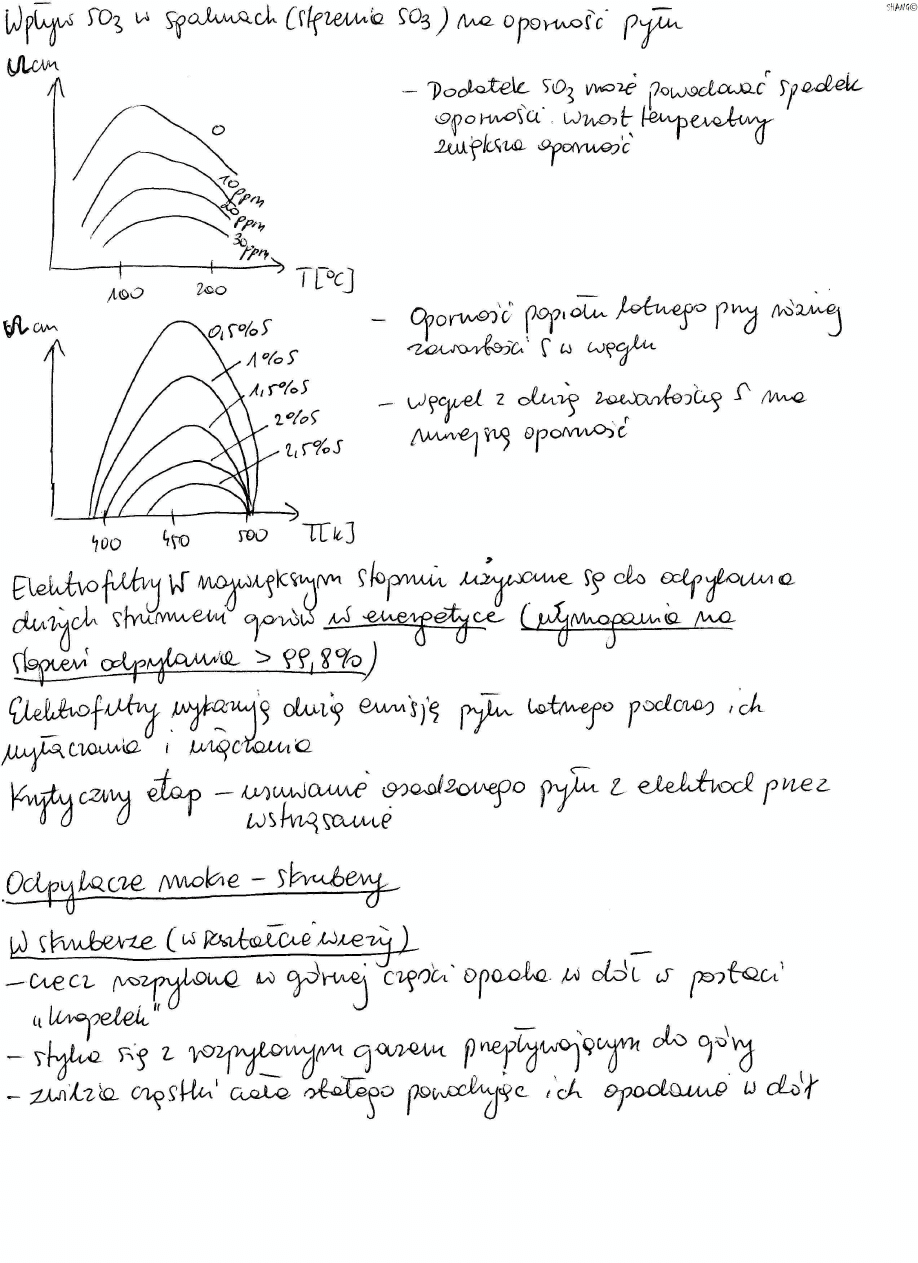 SHANG©
Wpływ SO3 w spalinach (stężenia SO3) na oporność pyłu
Ωcm
- Dodatek SO3 może powodować spadek
oporności. Wzrost temperatury
zwiększa oporność
0
10ppm
20 ppm
30ppm
100 200 T[°C]
Ωcm
0,5%S
1%S
1,5%S
2%S
2,5%S
400 450 500 T[K]
- Oporność popiołu lotnego przy różnej
zawartości S w węglu
- węgiel z dużą zawartością S ma
mniejszą oporność
Elektrofiltry w największym stopniu używane są do odpylania
dużych strumieni gazów w energetyce (wymagania na
stopień odpylania > 99,8%)
Elektrofiltry wykazują dużą emisję pyłu lotnego podczas ich
wyłączania i włączania
Krytyczny etap - usuwanie osadzonego pyłu z elektrod przez
wstrząsanie
Odpylacze mokre - skrubery
W skruberze (w kształcie wieży)
- ciecz rozpylona w górnej części opada w dół w postaci
"kropelek"
- styka się z rozpylonym gazem przepływającym do góry
- zwilża cząstki ciała stałego powodując ich opadanie w dół